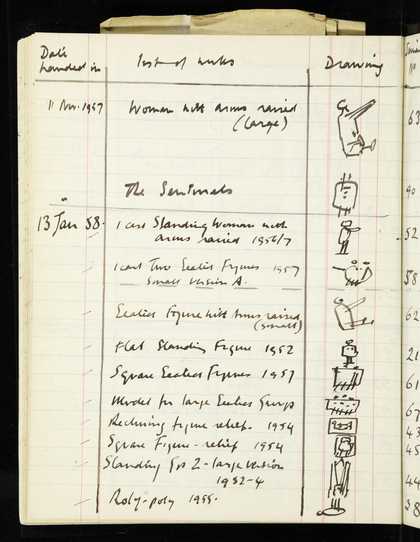 Date
handed in
List of works
Drawing
11 Nov. 1957
Woman with arms raised
(large)
63
The Sentinals
40
13 Jan 58.
1 cast Standing Woman with
arms raised 1956/7
52
1 cast Two Seated Figures 1957
Small version A.
58
Seated Figure with Arms raised
(small)
62
Flat Standing Figure 1952
21
Square Seated Figures 1957
61
Model for large Seated Group
67
Reclining figure relief. 1954
43
Square Figure - relief 1954
45
Standing Gp 2 - large version
1952-4
44
Roly-poly 1955.
58